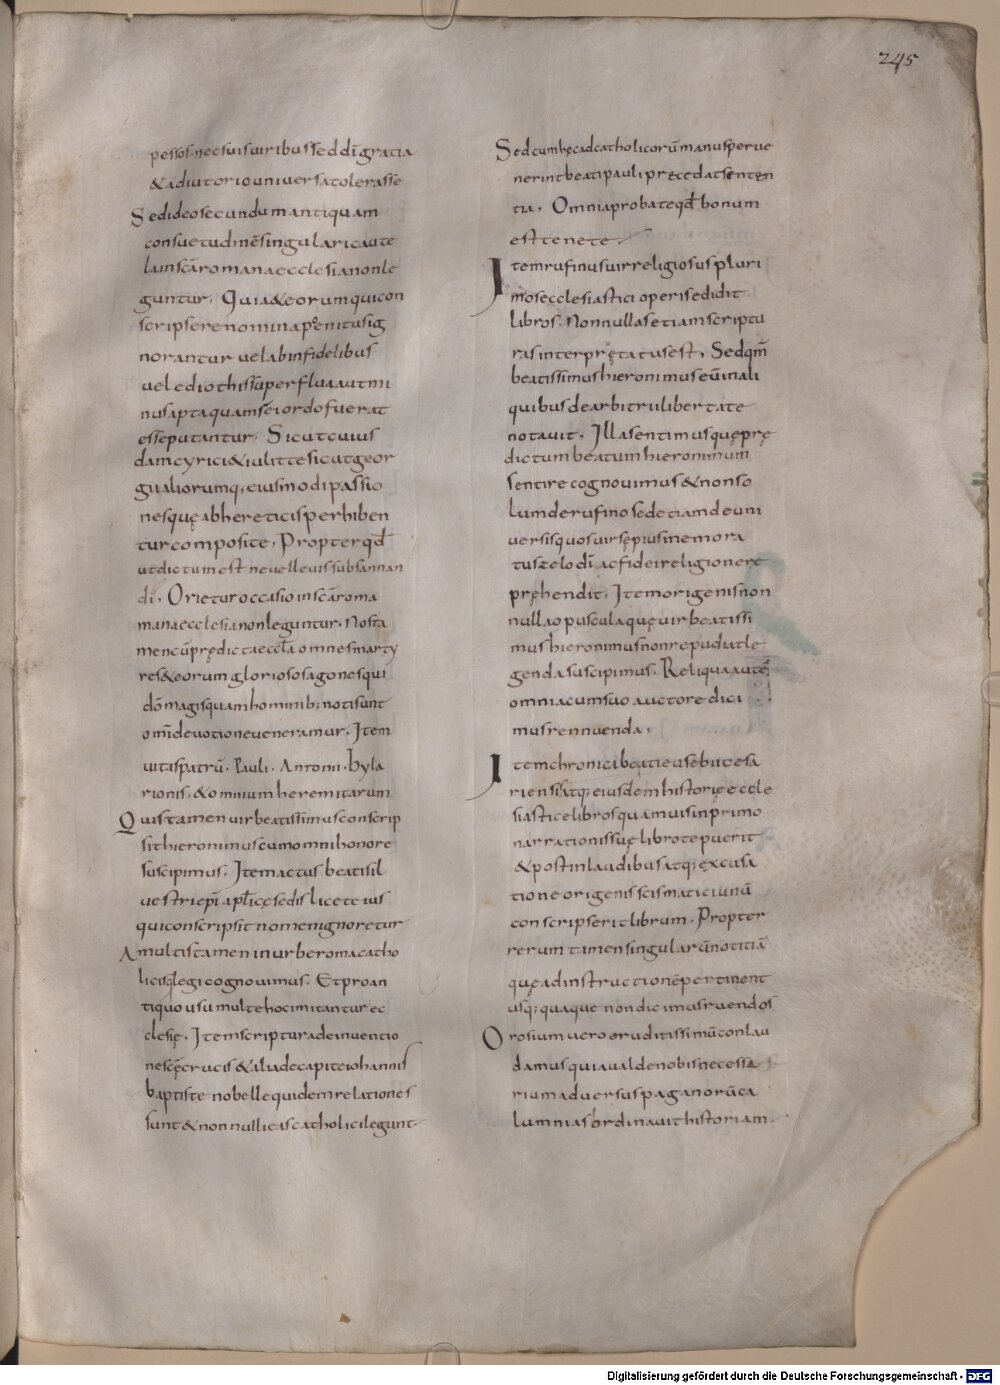 245
pessos. nec suis uiribus sed dī gratia
& adiutorio uniuersa tolerasse
Sed ideo secundum antiquam
consuetudinē singulari caute
la in scā romana ecclesia non le
guntur. Quia & eorum qui con
scripsere nomina penitus ig
norantur uel ab infidelibus
uel ediothis sup̄erflua aut mi
nus apta quam rei ordo fuerat
esse putantur. Sicut cuius
dam cyrici & iulitte sicut geor
gii aliorumq; eiusmodi passio
nes quę ab hereticis perhiben
tur composite. Propter qđ
ut dictum est ne uel leuis subsannan
di. Orietur occasio in scā roma
mana ecclesia non leguntur. Nos ta
men cū prędicta eccła omnes marty
res & eorum gloriosos agones qui
dō magis quam hominib; noti sunt
omī deuotione ueneramur. Item
uitas patrū. Pauli. Antonii. hyla
rionis. & omnium heremitarum
Quis tamen uir beatissimus conscrip
sit hieronimus cum omni honore
suscipimus. Item actus beati sil
uestri ep̄i apł̄icę sedis licet eius
qui conscripsit nomen ignoretur
A multis tamen in urbe roma catho
licis legi cognouimus. Et pro an
tiquo usu multe hoc imitantur ec
clesię. Item scriptura de inuentio
ne scę crucis & alia de capite iohannis
baptiste nobelle quidem relationes
sunt & nonnulli eas catholici legunt.
Sed cum hęc ad catholicorū manus perue
nerint beati pauli pręcedat senten
tia. Omnia probate qđ bonum
est tenete
Item rufinus uir religiosus pluri
mos ecclesiastici operis edidit
libros. Nonnullas etiam scriptu
ras interprętatus est. Sed qm̄
beatissimus hieronimus eū in ali
quibus de arbitrii libertate
notauit. Illa sentimus quę prę
dictum beatum hieronimum
sentire cognouimus & non so
lum de rufino sed etiam de uni
uersis quos uir sępius memora
tus zelo dī ac fidei religione re
pręhendit. Item origenis non
nulla opuscula quę uir beatissi
mus hieronimus non repudiat le
genda suscipimus. Reliqua autē
omnia cum suo auctore dici
mus rennuenda.
Item chronica beati eusebii cesa
riensis atq; eiusdem historię eccle
siastice libros quamuis in primo
narrationis suę libro tepuerit
& post in laudibus atq; excusa
tione origenis scismatici unū
conscripserit librum. Propter
rerum tamen singularū notitiā
quę ad instructionē pertinent
usq; quaque non dicimus ruendos
Orosium uero eruditissimū conlau
damus quia ualde nobis necessa
rium aduersus paganorū ca
lumnias ordinauit historiam.
Digitalisierung gefördert durch die Deutsche Forschungsgemeinschaft - DFG